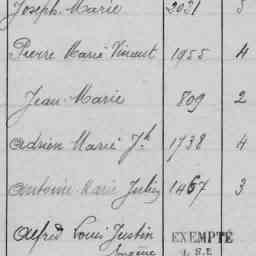 Joseph Marie 2021 3
Pierre Marie Vincent 1955 4
Jean Marie 809 2
Adrien Marie Jh 1738 4
Antoine Marie Julien 1467 3
Alfred Louis Justin EXEMPTÉ
Eugène